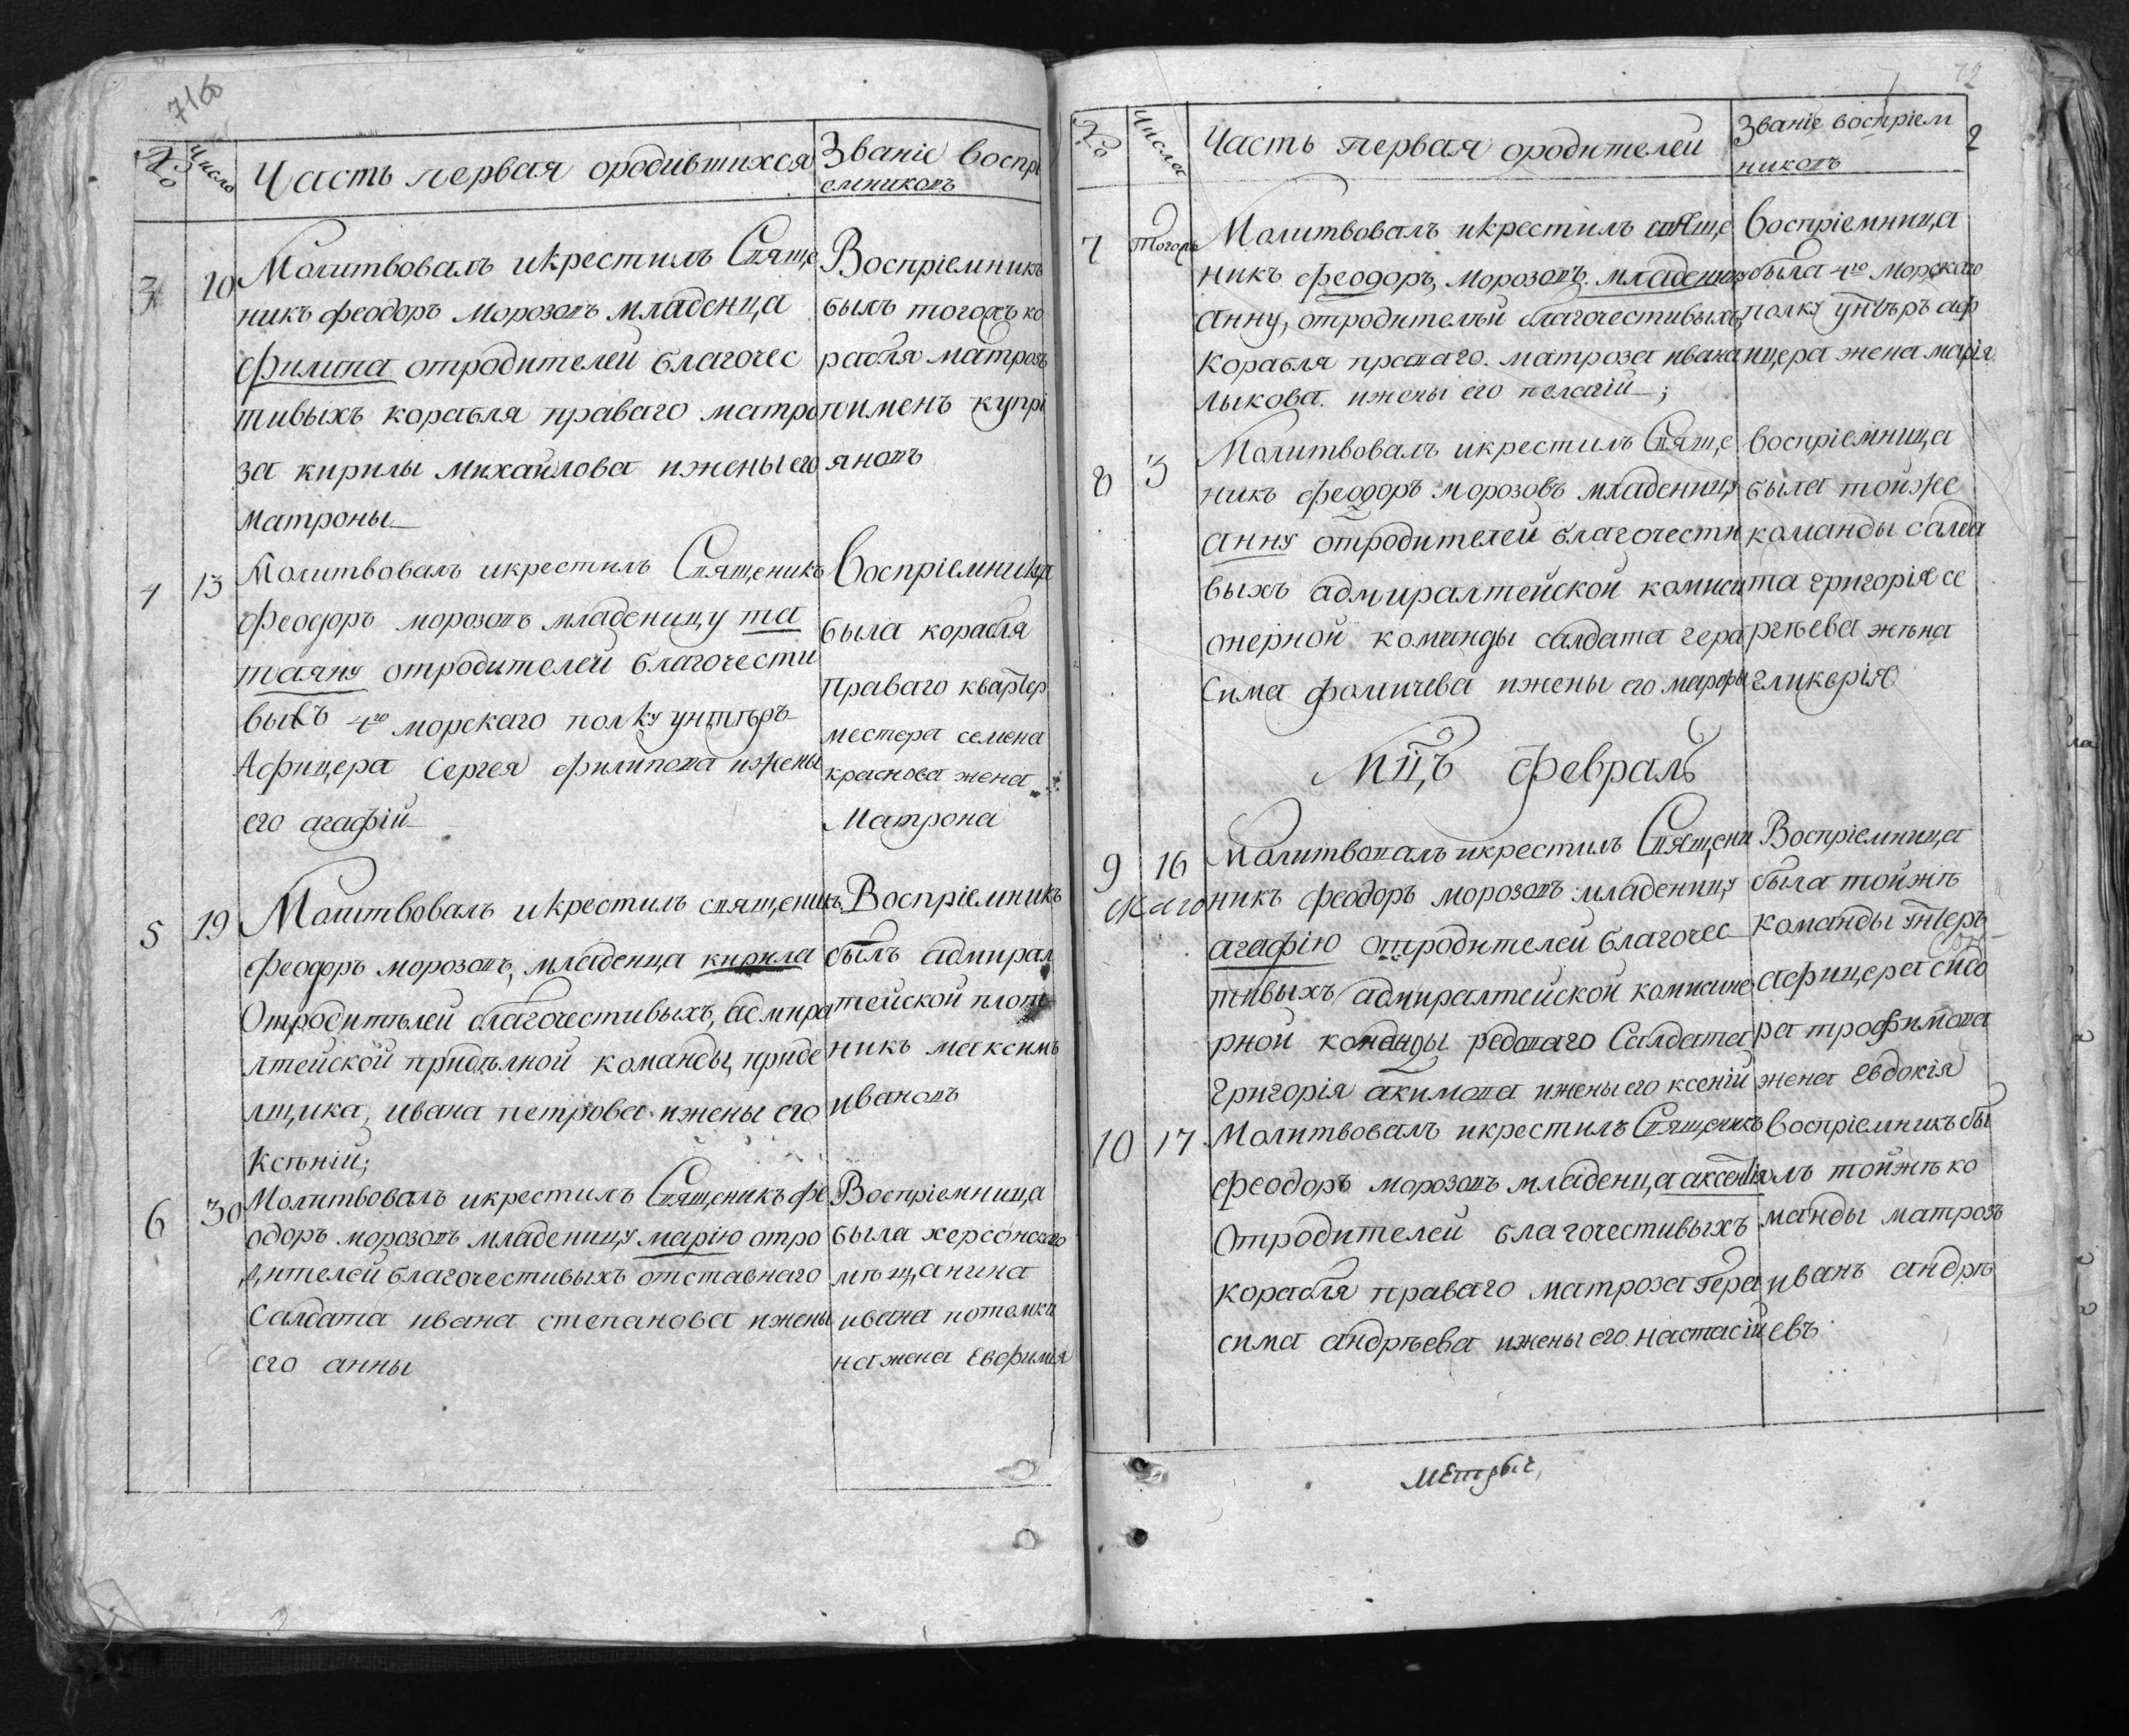 7160
№
Число
Часть первая ородившихся
Званіе воспрі
емниковъ
3
10
Молитвовалъ икрестилъ Свяще
никъ феодоръ Морозовъ младенца
филипа отродителей благочес
тивыхъ корабля праваго матро
за кирилы михайлова ижены его
матроны
Воспріемникъ
былъ тогожъ ко
рабля матрозъ
пименъ купрі
яновъ
4
13
Молитвовалъ икрестилъ Священикъ
феодоръ морозовъ младеницу та
таяну отродителей благочести
выхъ 4го морскаго полку унтѣръ
Афицера Сергея филипова ижены
его агафіи
воспріемница
была корабля
праваго квартер
местера семена
краснова жена
Матрона
5
19
Молитвовалъ икрестилъ священикъ
феодоръ морозовъ, младенца кирила
Отродитѣлей благочестивыхъ, адмира
лтейской придѣлной команды, приде
лщика, ивана петрова ижены его
Ксѣніи;
Воспріемникъ
былъ адмирал
тейской плот
никъ максимъ
ивановъ
6
30
Молитвовалъ икрестилъ Священикъ фе
одоръ морозовъ младеницу марію отро
дителей благочестивыхъ отставнаго
Салдата ивана степанова ижены
его анны
Воспріемница
была херсонскаго
мѣщанина
ивана потомки
на жена Евфимія
72
№
Числа
Часть первая ородителей
Званіе воспріем
никовъ
2
7
тогожъ
Молитвовалъ икрестилъ свяще
никъ феодоръ, морозовъ. младеницу
анну, отродителѣй благочестивыхъ,
корабля праваго. матроза ивана
лыкова. ижены его пелагіи;
воспріемница
была 4го морскаго
полку унтѣръ аф
ицера жена марія
8
3
Молитвовалъ икрестилъ Свяще
никъ феодоръ морозовъ младеницу
анну отродителей благочести
выхъ адмиралтейской комиси
онерной команды салдата гера
сима фомичева ижены его марфы
воспріемница
была тойже
команды салда
та григорія се
ргѣева жѣна
гликерія
Мцъ февраль
9
16
Молитвовалъ икрестилъ Священи
никъ феодоръ морозовъ младеницу
агафію отродителей благочес
тивыхъ адмиралтейской комисионе
рной команды рядоваго Салдата
григорія акимова ижены его ксеніи
Воспріемница
была тойжѣ
команды унтеръ
афицера сисо
ра трофимова
жена Евдокія
10
17
Молитвовалъ икрестилъ Священикъ
феодоръ морозовъ младенца аксентія
Отродителей благочестивыхъ
корабля праваго матроза гера
сима андрѣева ижены его настасіи
воспріемникъ бы
лъ тойжѣ ко
манды матрозъ
иванъ андрѣ
евъ